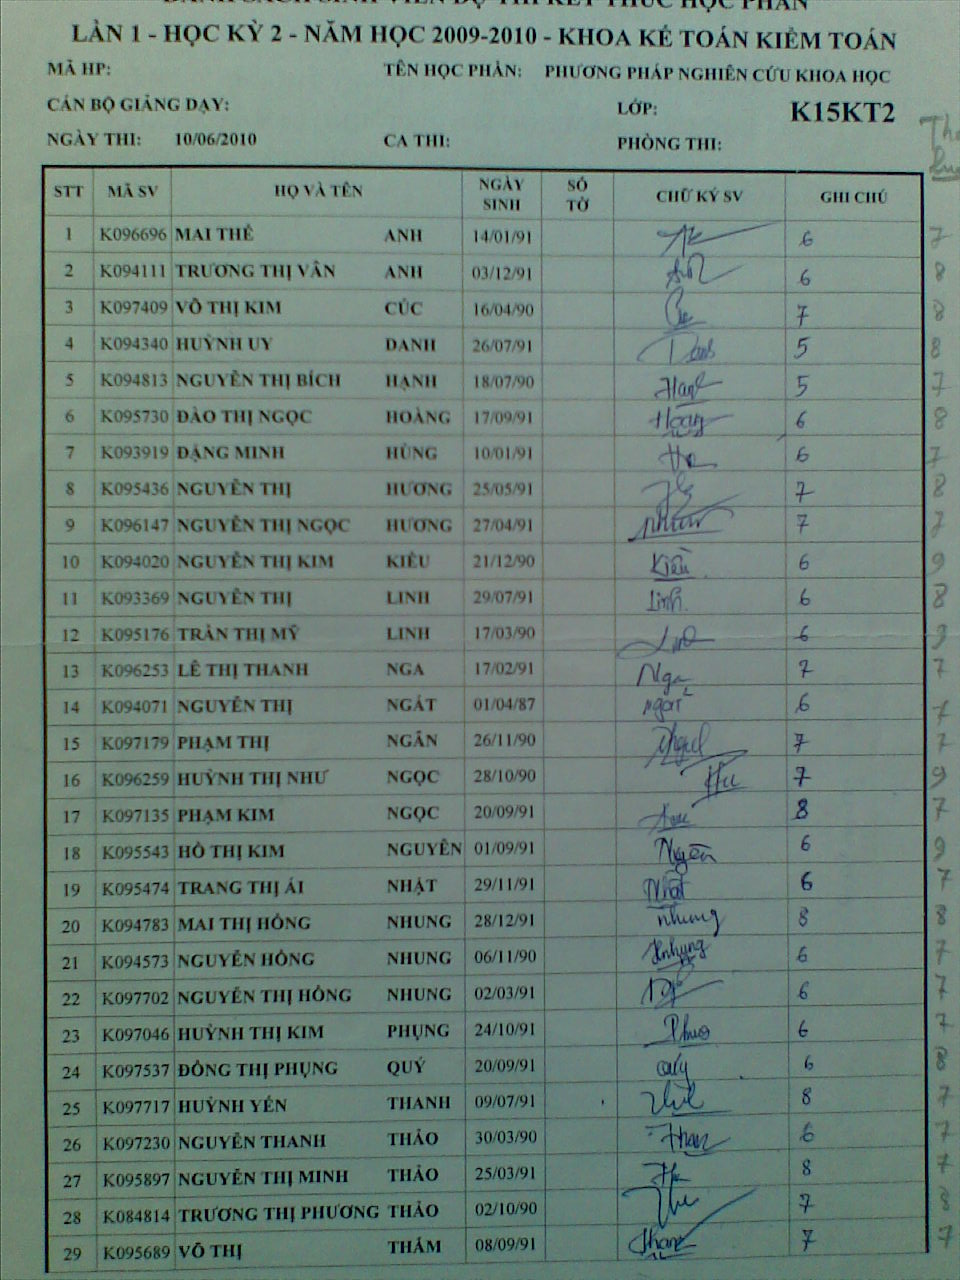 DANH SÁCH SINH VIÊN DỰ THI KẾT THÚC HỌC PHẦN
LẦN 1 - HỌC KỲ 2 - NĂM HỌC 2009-2010 - KHOA KẾ TOÁN KIỂM TOÁN
MÃ HP: TÊN HỌC PHẦN: PHƯƠNG PHÁP NGHIÊN CỨU KHOA HỌC
CÁN BỘ GIẢNG DẠY: LỚP: K15KT2
NGÀY THI: 10/06/2010 CA THI: PHÒNG THI:
STT MÃ SV HỌ VÀ TÊN NGÀY SINH SỐ TỜ CHỮ KÝ SV GHI CHÚ
1 K096696 MAI THẾ ANH 14/01/91 6 7
2 K094111 TRƯƠNG THỊ VÂN ANH 03/12/91 6 8
3 K097409 VÕ THỊ KIM CÚC 16/04/90 7 8
4 K094340 HUỲNH UY DANH 26/07/91 Danh 5 8
5 K094813 NGUYỄN THỊ BÍCH HẠNH 18/07/90 Hạnh 5 7
6 K095730 ĐÀO THỊ NGỌC HOÀNG 17/09/91 Hoàng 6 8
7 K093919 ĐẶNG MINH HÙNG 10/01/91 6 7
8 K095436 NGUYỄN THỊ HƯƠNG 25/05/91 7 8
9 K096147 NGUYỄN THỊ NGỌC HƯƠNG 27/04/91 7 7
10 K094020 NGUYỄN THỊ KIM KIỀU 21/12/90 Kiều 6 9
11 K093369 NGUYỄN THỊ LINH 29/07/91 Linh 6 8
12 K095176 TRẦN THỊ MỸ LINH 17/03/90 6
13 K096253 LÊ THỊ THANH NGA 17/02/91 Nga 7 7
14 K094071 NGUYỄN THỊ NGÁT 01/04/87 Ngát 6 7
15 K097179 PHẠM THỊ NGÂN 26/11/90 7 7
16 K096259 HUỲNH THỊ NHƯ NGỌC 28/10/90 7 9
17 K097135 PHẠM KIM NGỌC 20/09/91 8 7
18 K095543 HỒ THỊ KIM NGUYÊN 01/09/91 6 9
19 K095474 TRANG THỊ ÁI NHẬT 29/11/91 Nhật 6 7
20 K094783 MAI THỊ HỒNG NHUNG 28/12/91 Nhung 8 8
21 K094573 NGUYỄN HỒNG NHUNG 06/11/90 Nhung 6 7
22 K097702 NGUYỄN THỊ HỒNG NHUNG 02/03/91 6 7
23 K097046 HUỲNH THỊ KIM PHỤNG 24/10/91 6 7
24 K097537 ĐỒNG THỊ PHỤNG QUÝ 20/09/91 Quý 6 8
25 K097717 HUỲNH YẾN THANH 09/07/91 8 7
26 K097230 NGUYỄN THANH THẢO 30/03/90 6 7
27 K095897 NGUYỄN THỊ MINH THẢO 25/03/91 8 7
28 K084814 TRƯƠNG THỊ PHƯƠNG THẢO 02/10/90 7 8
29 K095689 VÕ THỊ THẮM 08/09/91 7 7